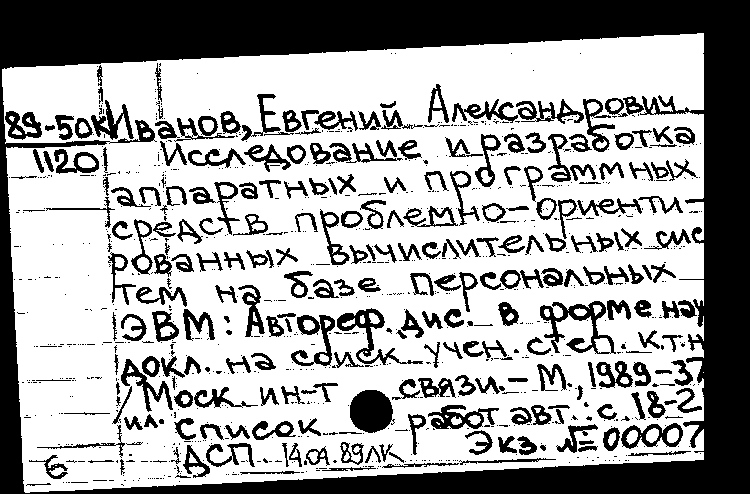 89-50К Иванов, Евгений Александрович
1120 Исследование и разработка
аппаратных и программных
средств проблемно-ориенти-
рованных вычислительных сис
тем на базе персональных
ЭВМ: Автореф. дис. в форме нау
докл. на соиск. учен. степ. к.т.н
/Моск. ин-т связи.-М., 1989.-37
ил. Список работ авт.: с. 18-2
Экз. №00007
ДСП. 14.09.89ЛК
6